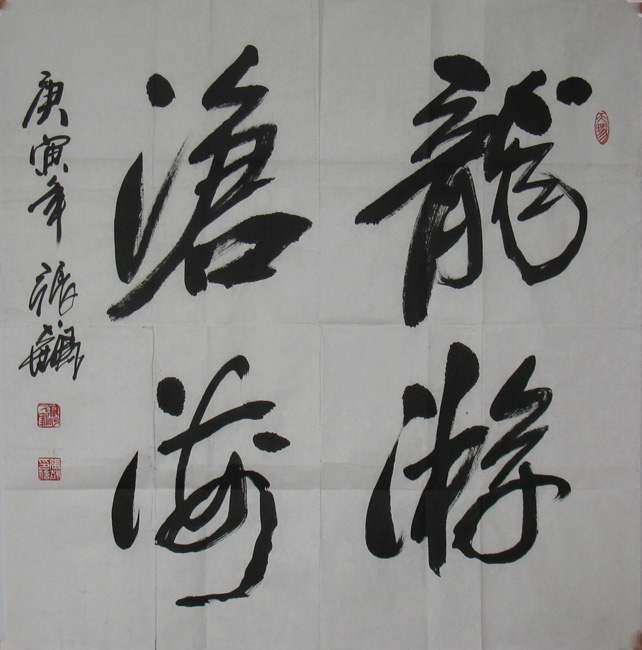 龍游
滄海
庚寅年 張